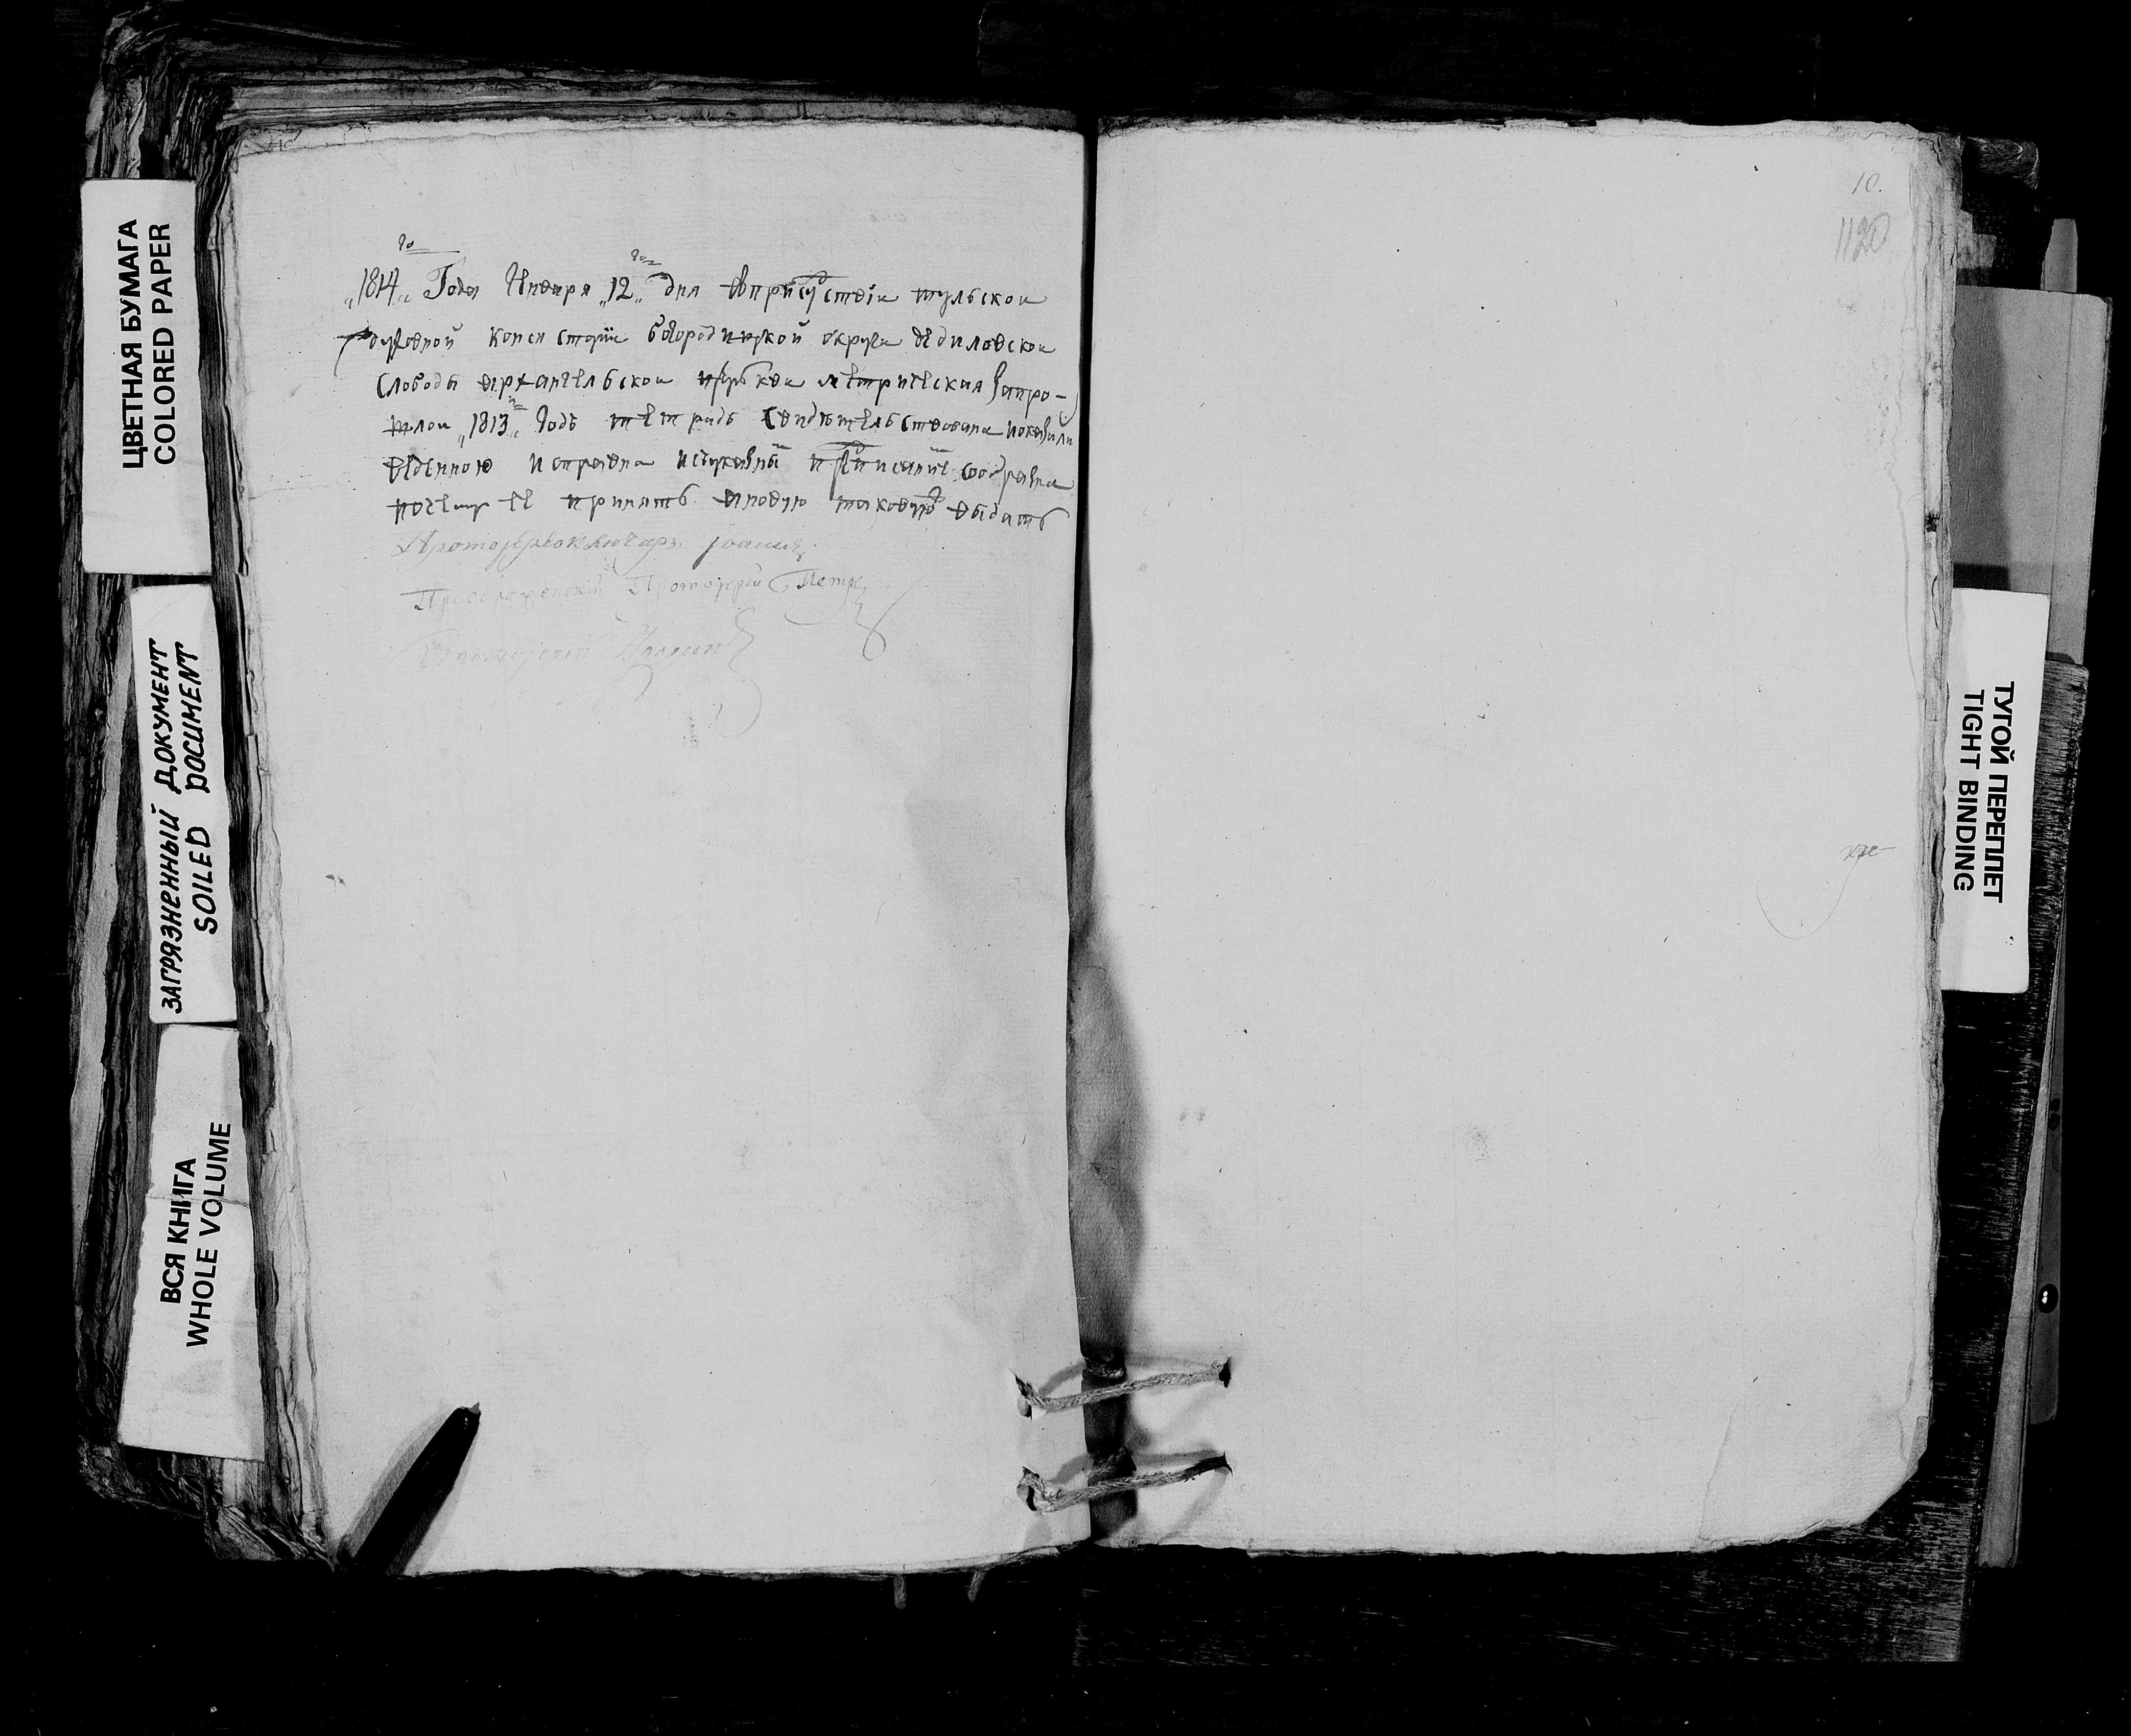 ЦВЕТНАЯ БУМАГА
COLORED PAPER
ЗАГРЯЗНЕННЫЙ ДОКУМЕНТ
SOILED DOCUMENT
ВСЯ КНИГА
WHOLE VOLUME
„1814„ го Года Генваря „12„ го дня вприсудствіи тульской
духовной консисторіи богородицкой округи дѣдиловской
слободы архангельской церькви метрическая запро-
шлой „1813„ й годъ тетрадь свидѣтельствована показали
веденною исправна исъуказный предписаніи сообразна
почему ее принять вновую таковуюж выдать
Протоіерей ключарь Іоаннъ
Преображенскій Протоіерей Петръ
Протоіерей
10.
1120
ТУГОЙ ПЕРЕПЛЕТ
TIGHT BINDING